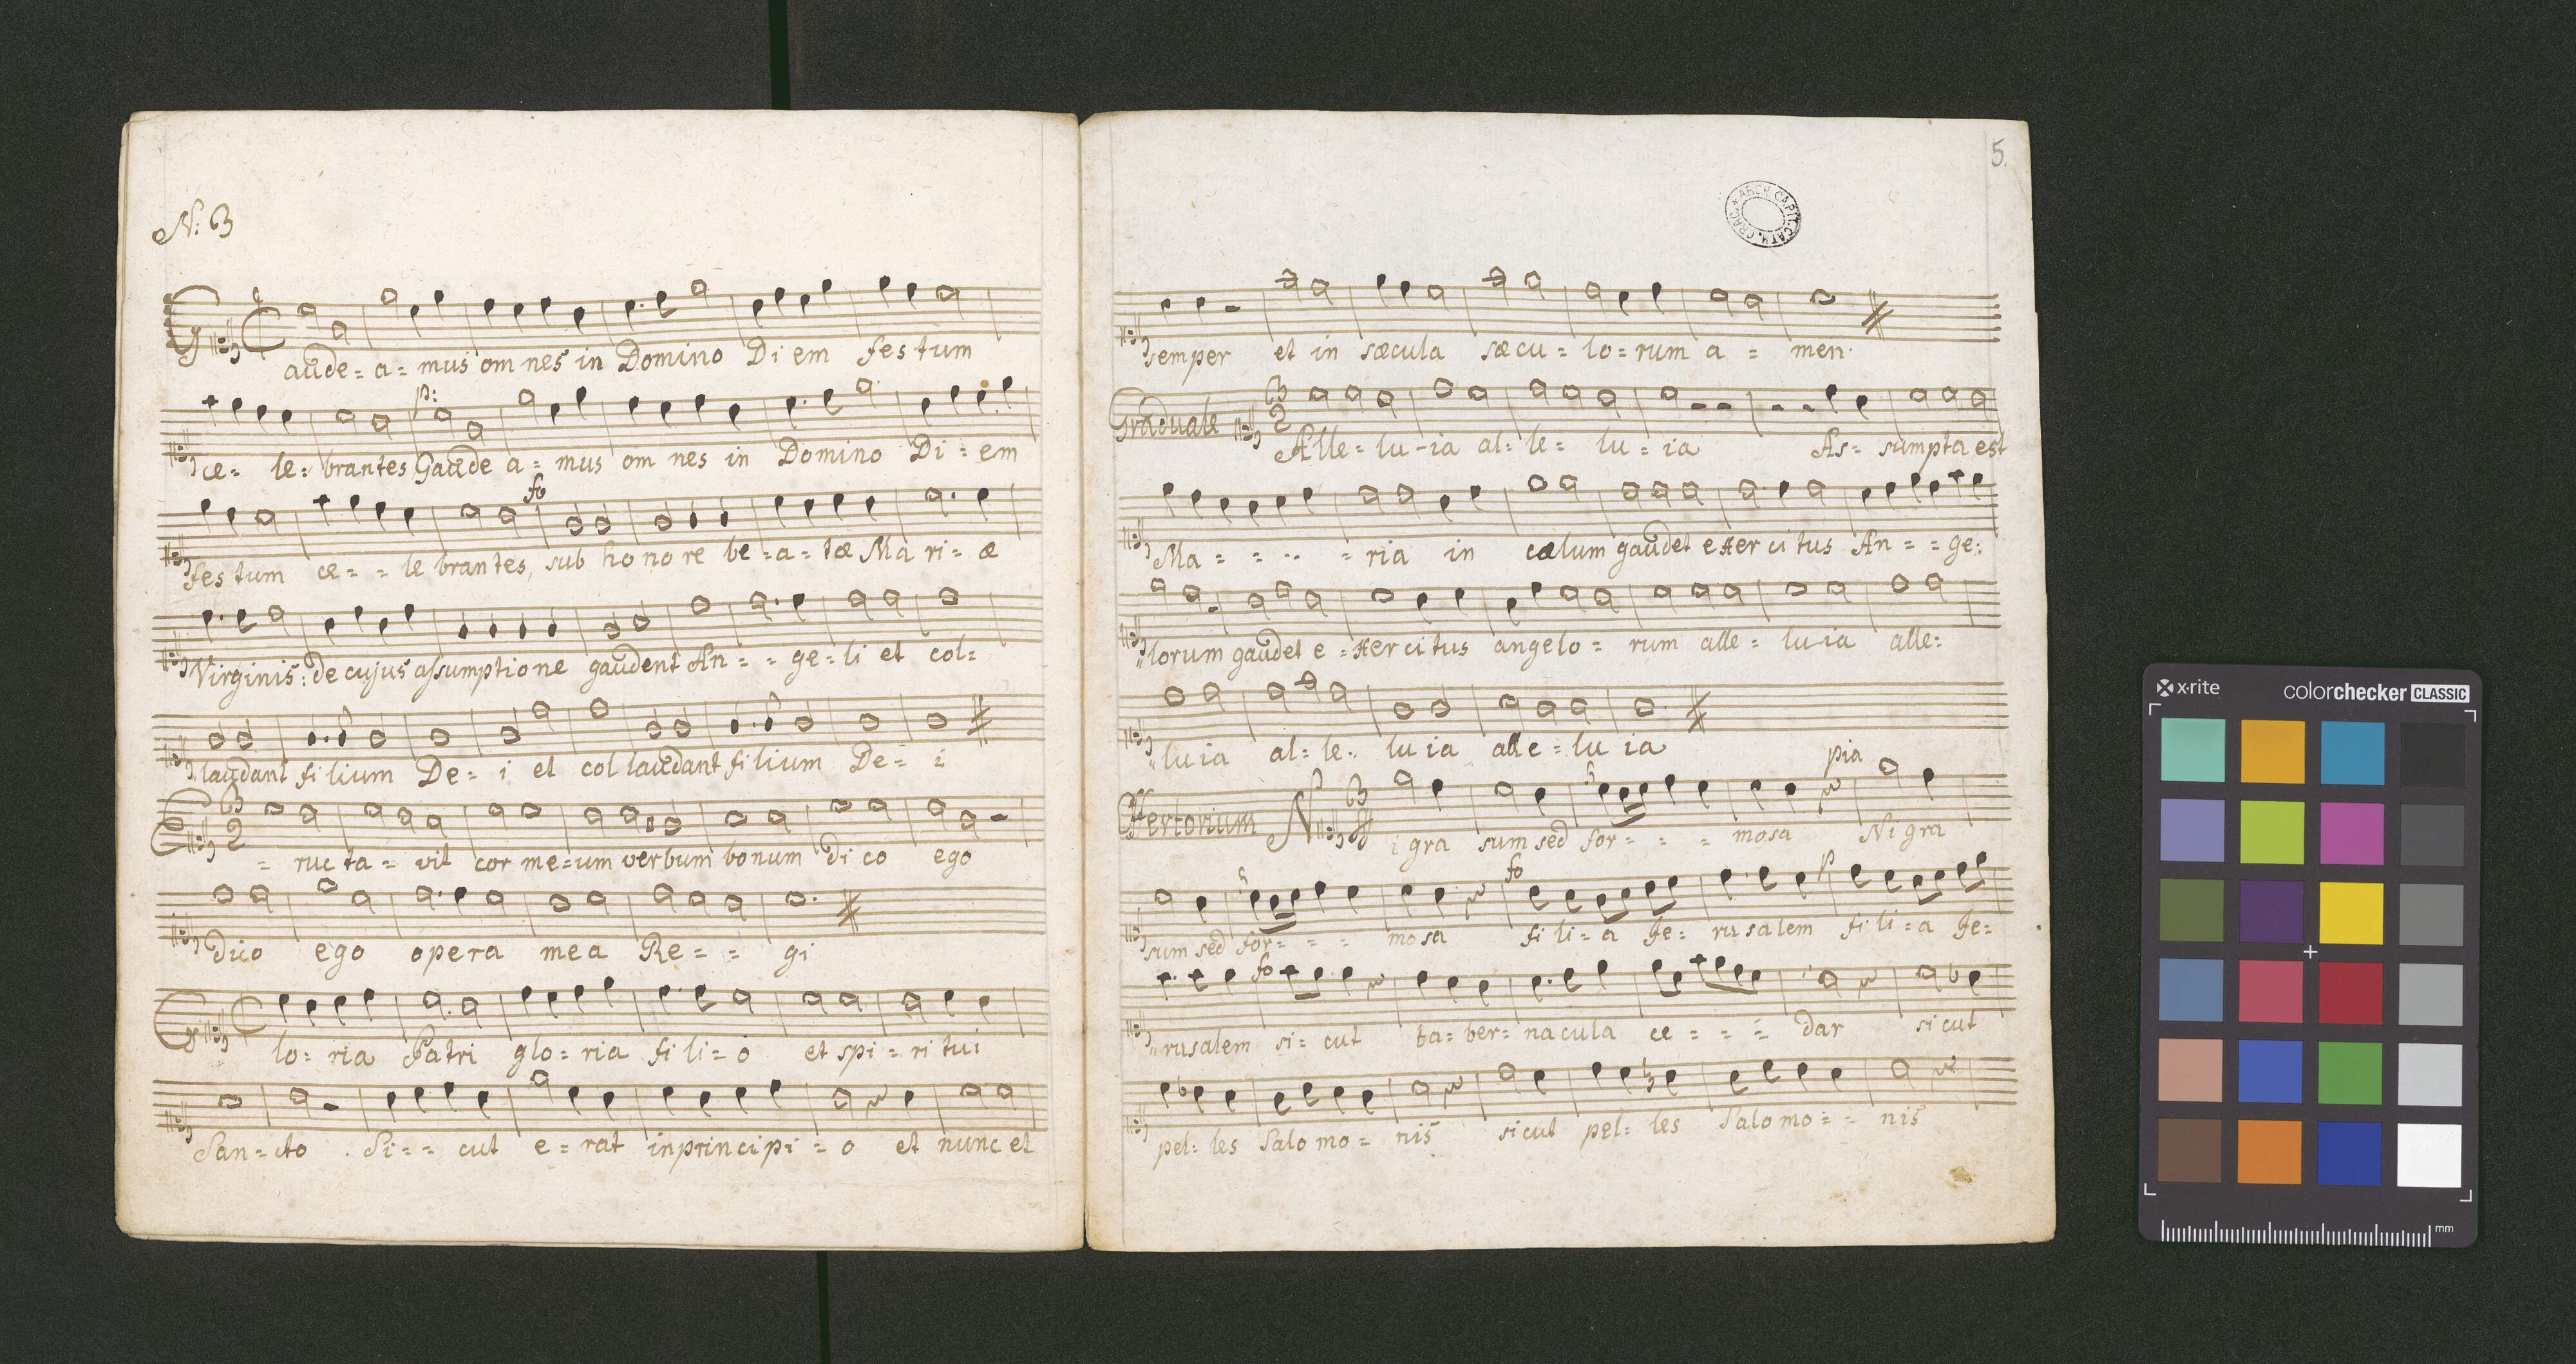 N: 3
Gaude = a = mus om nes in Domino Di em festum
ce = le = brantes Gaude a = mus om nes in Domino Di = em
p:
festum ce = = le brantes, sub ho no re be = a = tæ Ma ri = æ
fo
Virginis: de cujus assumptione gaudent An = = ge = li et col =
laudant fi lium De = i et col laudant fi lium De = i
3 2
E = ruc ta = vit cor me = um verbum bonum di co ego
duo ego opera mea Re = = gi
Glo = ria Patri glo = ria fi li = o et spi = ri tui
San = cto. Si = = cut e = rat in principi = o et nunc et
5.
ARCH. CAPIT. CATH. CRAC.
semper et in sæcula sæ cu = lo = rum a = men.
Graduale 3 2
Alle = lu - ia al = le = lu = ia As = sumpta est
Ma = = = = ria in cælum gaudet exer ci tus An = = ge =
lorum gaudet e = xer ci tus angelo = rum alle = lu ia alle =
lu ia al = le = lu ia alle = lu ia
Offertorium 3 8 pia
Nigra sum sed for = = = mosa Nigra
fo p
sum sed for = = = mo sa fi li = a Je = ru salem fi li = a Je =
fo
rusalem si = cut ta = ber = nacula ce = = = dar si cut
pel = les Salo mo = nis si cut pel = les Salo mo = = nis
x·rite colorchecker CLASSIC
mm